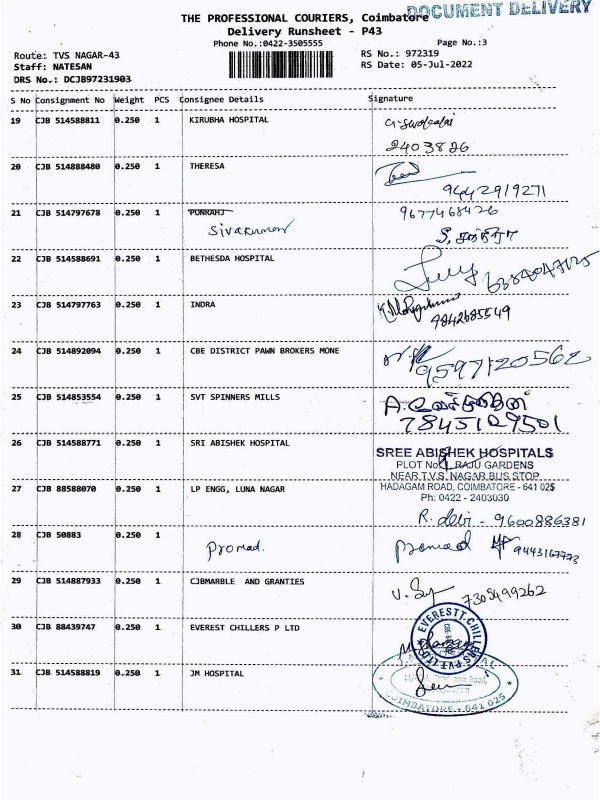 DOCUMENT DELIVERY
THE PROFESSIONAL COURIERS, Coimbatore
Delivery Runsheet - P43
Phone No.:0422-3505555
Page No.:3
Route: TVS NAGAR-43
RS No.: 972319
Staff: NATESAN
RS Date: 05-Jul-2022
DRS No.: DCJB97231903
S No Consignment No Weight PCS Consignee Details Signature
19 CJB 514588811 0.250 1 KIRUBHA HOSPITAL
2403826
20 CJB 514888480 0.250 1 THERESA
9442919271
21 CJB 514797678 0.250 1 PONRAHJ 9677468426
Sivakumar
22 CJB 514588691 0.250 1 BETHESDA HOSPITAL
23 CJB 514797763 0.250 1 INDRA
9842685549
24 CJB 514892094 0.250 1 CBE DISTRICT PAWN BROKERS MONE
9597120562
25 CJB 514853554 0.250 1 SVT SPINNERS MILLS
7845129501
26 CJB 514588771 0.250 1 SRI ABISHEK HOSPITAL
SREE ABISHEK HOSPITALS
PLOT No. RAJU GARDENS
NEAR T.V.S. NAGAR BUS STOP
HADAGAM ROAD, COIMBATORE - 641 025
Ph: 0422 - 2403030
27 CJB 88588070 0.250 1 LP ENGG, LUNA NAGAR
R. debi - 9600886381
28 CJB 50883 0.250 1
Promad. Promad 9443167773
29 CJB 514887933 0.250 1 CJBMARBLE AND GRANTIES
7305499262
30 CJB 88439747 0.250 1 EVEREST CHILLERS P LTD
EVERESTT CHILLERS PVT LTD
31 CJB 514588819 0.250 1 JM HOSPITAL
COIMBATORE - 641 025